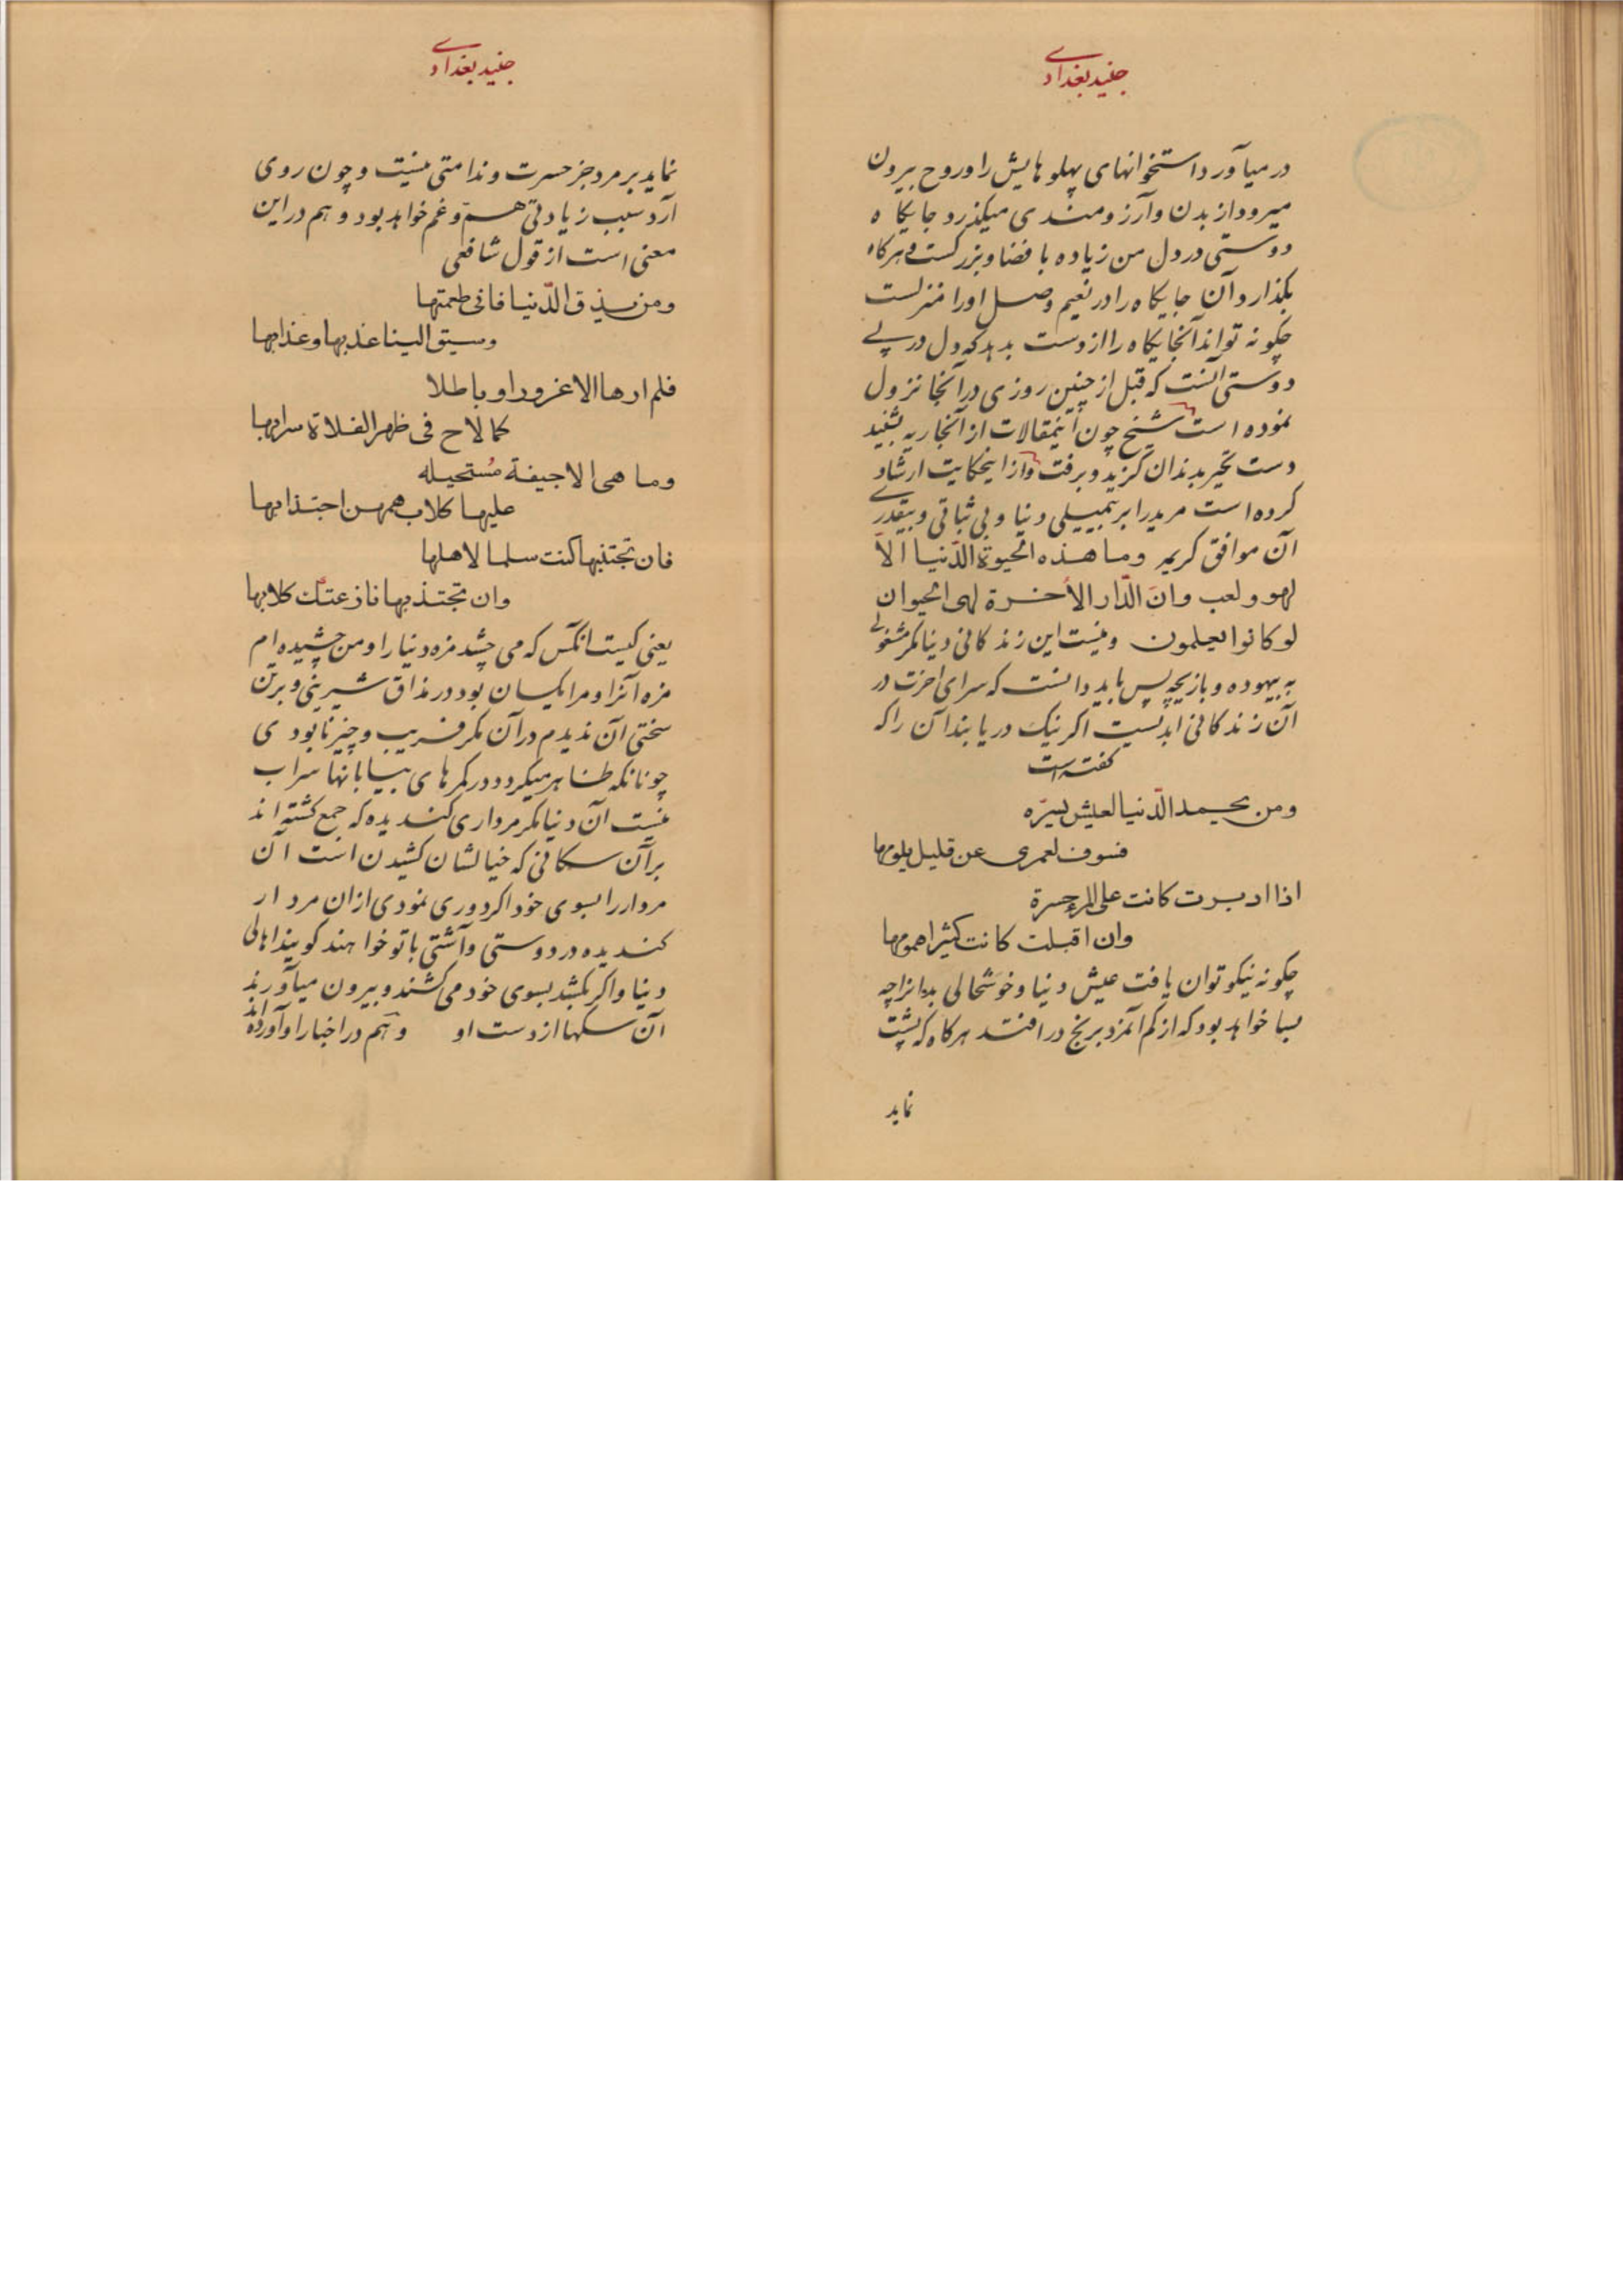 جنید بغدادی
در میآورد استخوانهای پهلوهایش را و روح بیرون
میرود از بدن و آرزومندی میکذرد جایکاه
دوستی در دل من زیاده با فضا و بزرکست و هرکاه
بکذارد آن جایکاه را در نعیم وصل او را منزلست
چکونه تواند آنجایکاه را از دست بدهد که دل در پی
دوستی آنست که قبل از چنین روزی در آنجا نزول
نموده است شیخ چون اینمقالات از آنجاریه بشنید
دست تحیر بدندان کزید و برفت و از اینحکایت ارشاد
کرده است مرید را بر بی‌ثباتی و بیقدری
آن موافق کریمه وما هذه الحیوة الدّنیا الاّ
لهو ولعب وانّ الدّار الأخرة لهی الحیوان
لو کانوا یعلمون و نیست این زندکانی دنیا مکر مشغولی
به بیهوده و بازیچه پس باید دانست که سرای اخرت در
آن زندکانی ابدیست اکر نیک دریابند آن را که
کفته است
ومن یحمد الدّنیا لعیش یسرّه
فسوف لعمری عن قلیل یلومها
اذا ادبرت کانت علی المرء حسرة
وان اقبلت کانت کثیرا همومها
چکونه نیکو توان یافت عیش دنیا و خوشحالی بدانرا چه
بسا خواهد بود که از کم آمزد برنج در افتد هرکاه که پشت
نماید
جنید بغدادی
نماید بر مرد جز حسرت و ندامتی نیست و چون روی
آرد سبب زیادتی همّ و غم خواهد بود و هم در این
معنی است از قول شافعی
ومن یذق الدّنیا فانی طعمتها
وسیق الینا عذبها وعذابها
فلم ارها الا غرورا وباطلا
کما لاح فی ظهر الفلاة سرابها
وما هی الا جیفة مُستحیله
علیها کلاب همهن اجتذابها
فان تجتنبها کنت سلما لاهلها
وان تجتذبها نازعتک کلابها
یعنی کیست انکس که می چشد مزه دنیا را و من چشیده ام
مزه آنرا و مرا یکسان بود در مذاق شیرینی و برتن
سختی آن ندیدم در آن مکر فریب و چیز نابودی
چونانکه ظاهر میکردد در کمرهای بیابانها سراب
نیست آن دنیا مکر مرداری کندیده که جمع کشته اند
بر آن سکانی که خیالشان کشیدن است آن
مردار را بسوی خود اکر دوری نمودی از ان مردار
کندیده در دوستی و آشتی با تو خواهند کویند اهالی
دنیا و اکر بکشد بسوی خود می کشند و بیرون میآورند
آن سکها از دست او و هم در اخبار او آورده اند